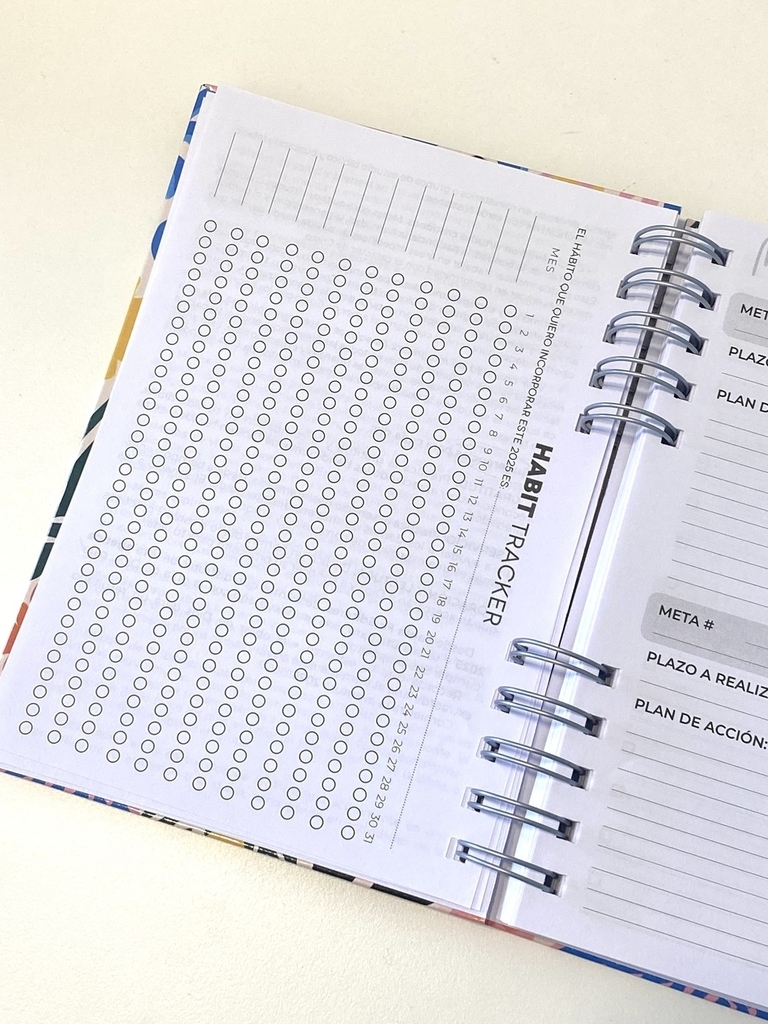 HABIT TRACKER
EL HÁBITO QUE QUIERO INCORPORAR ESTE 2025 ES:
MES
1 2 3 4 5 6 7 8 9 10 11 12 13 14 15 16 17 18 19 20 21 22 23 24 25 26 27 28 29 30 31
PLAN D
META #
PLAZO A REALIZ
PLAN DE ACCIÓN: